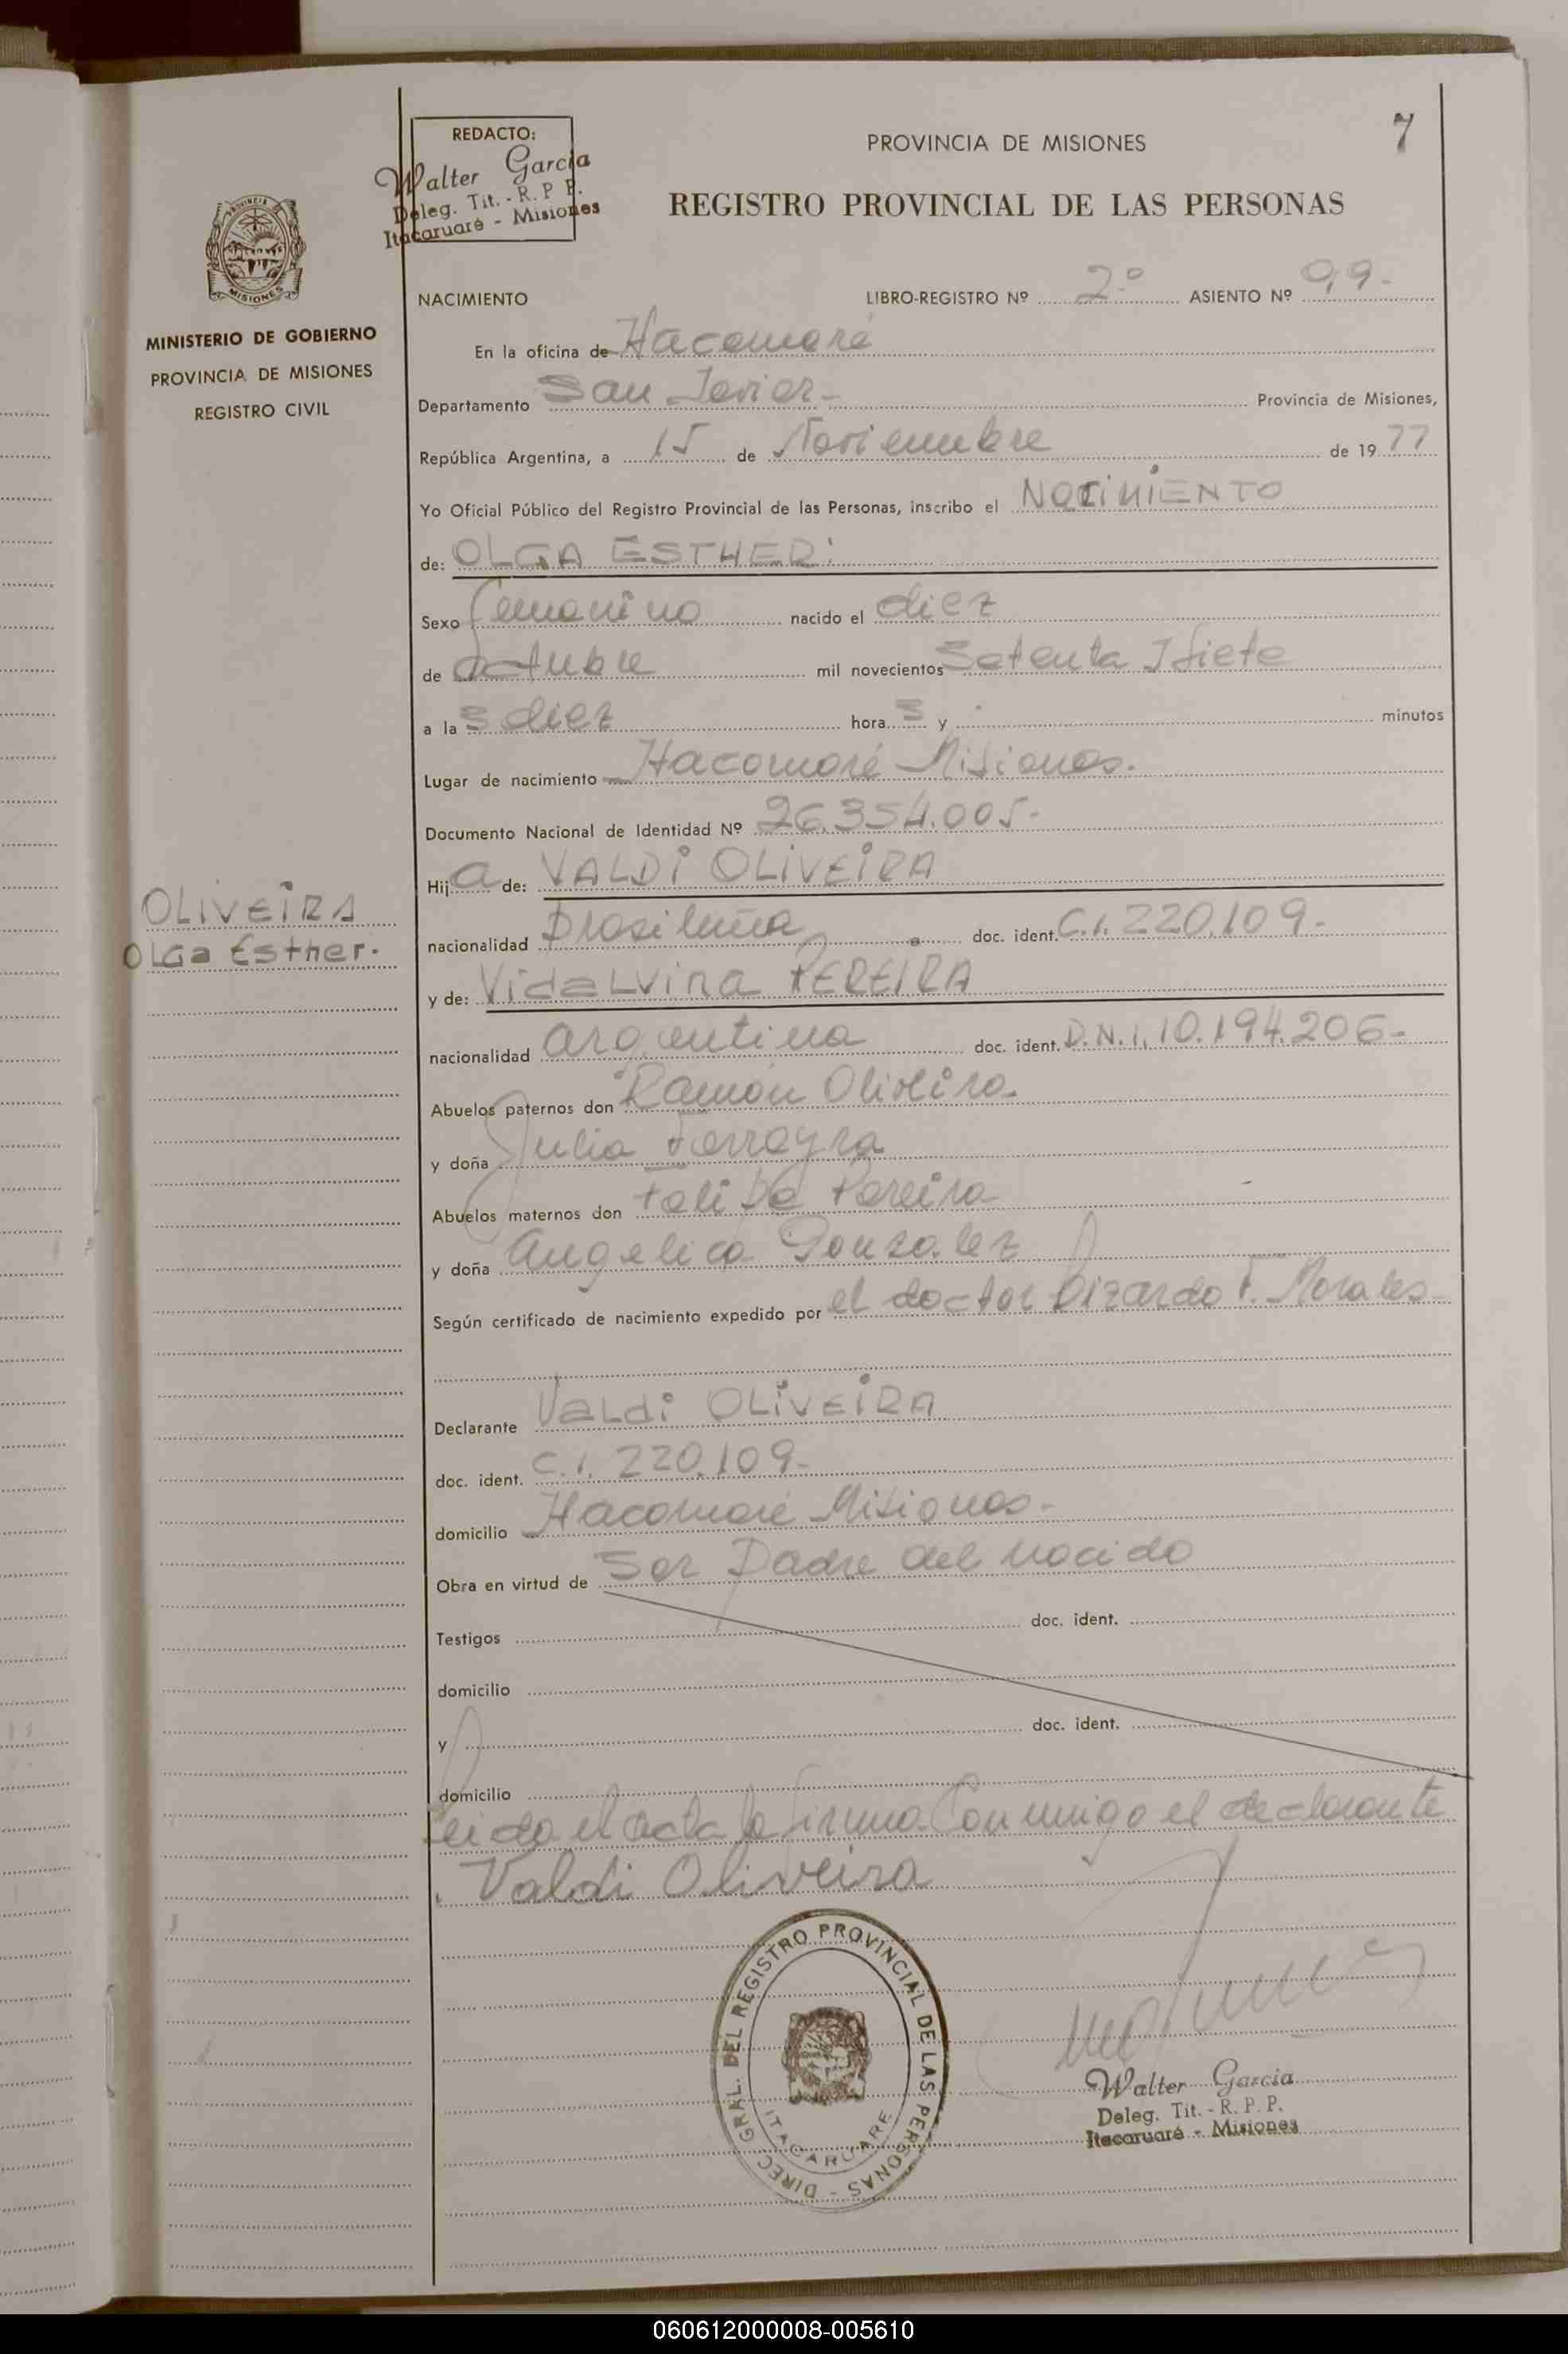 7
REDACTO:
Walter Garcia
Deleg. Tit. - R. P. P.
Itacaruaré - Misiones
PROVINCIA DE MISIONES
REGISTRO PROVINCIAL DE LAS PERSONAS
PROVINCIA
MISIONES
MINISTERIO DE GOBIERNO
PROVINCIA DE MISIONES
REGISTRO CIVIL
NACIMIENTO LIBRO-REGISTRO Nº 2º ASIENTO Nº 99-
En la oficina de Itacaruaré
Departamento San Javier- Provincia de Misiones,
República Argentina, a 15 de Noviembre de 1977
Yo Oficial Público del Registro Provincial de las Personas, inscribo el NACIMIENTO
de: OLGA ESTHER:
Sexo femenino nacido el diez
de octubre mil novecientos Setenta y Siete
a las diez horas y - minutos
Lugar de nacimiento Itacaruaré Misiones.
Documento Nacional de Identidad Nº 26.354.005-
Hija de: VALDI OLIVEIRA
OLIVEIRA
OLGa Esther.
nacionalidad brasileña doc. ident. C.I. 220.109-
y de: VidaLvina PEREIRA
nacionalidad argentina doc. ident. D.N.I. 10.194.206-
Abuelos paternos don Ramón Oliveira.
y doña Julia Ferreyra
Abuelos maternos don Felipe Pereira
y doña Angelica Gonzalez
Según certificado de nacimiento expedido por el doctor Lizardo F. Morales-
Declarante VaLdi OLIVEIRA
doc. ident. C.I. 220.109-
domicilio Itacaruaré Misiones-
Obra en virtud de Ser Padre del nacido
Testigos doc. ident.
domicilio
y doc. ident.
domicilio
Leida el acta la firma conmigo el declarante
Valdi Oliveira
DIREC. GRAL. DEL REGISTRO PROVINCIAL DE LAS PERSONAS -
ITACARUARE
Walter Garcia
Deleg. Tit. - R. P. P.
Itacaruaré - Misiones
060612000008-005610